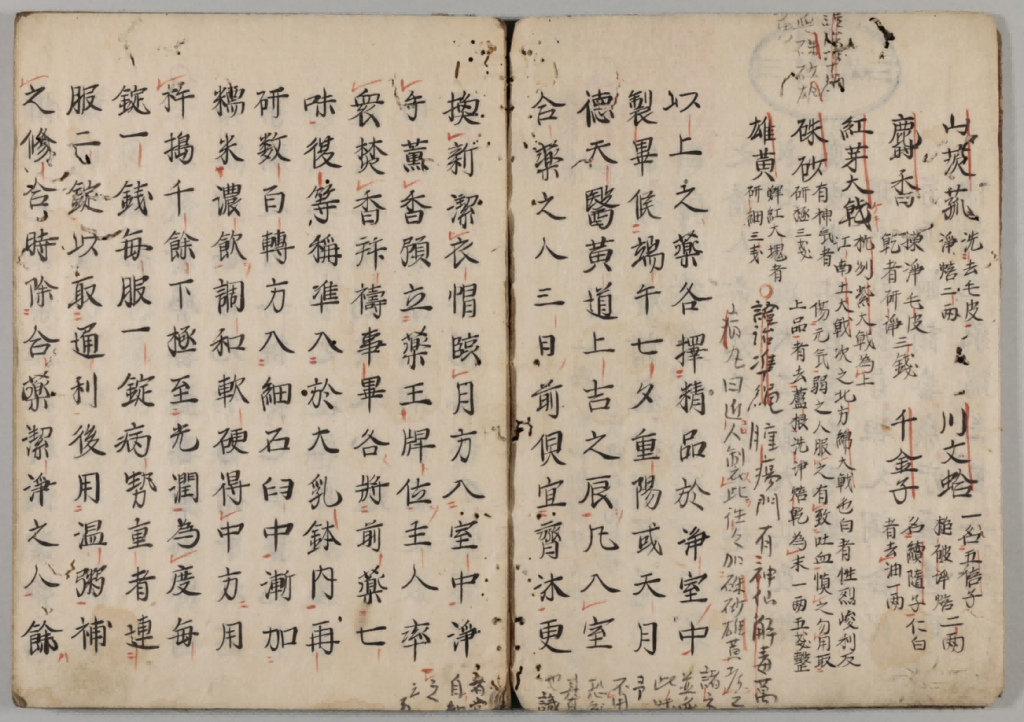 山茨菰 洗去毛皮
淨焙二兩
川文蛤 一名五倍子
搥破淨焙二兩
麝香 揀淨毛皮
乾者研淨三錢
千金子 名續隨子仁白
者去油一兩
紅芽大戟 杭州紫大戟為上
江南土大戟次之北方綿大戟色白者性烈峻利反
傷元氣弱之人服之有致吐血慎之勿用取
上品者去蘆根洗淨焙乾為末一兩五錢整
硃砂 有神氣者
研極三錢
雄黃 鮮紅大塊者
研細三錢
○證治準繩腫瘍門有神仙解毒萬
病丸曰近人製此往々加硃砂雄黃
以上之藥各擇精品於淨室中
製畢候端午七夕重陽或天月
德天醫黃道上吉之辰凡入室
合藥之人三日前俱宜齊沐更
換新潔衣帽臨月方入室中淨
手薰香預立藥王牌位主人率
衆焚香拜禱事畢各將前藥七
味復等稱準入於大乳鉢內再
研数百轉方入細石臼中漸加
糯米濃飲調和軟硬得中方用
杵搗千餘下極至光潤為度每
錠一錢每服一錠病勢重者連
服二錠以取通利後用温粥補
之修合時除合藥潔淨之人餘